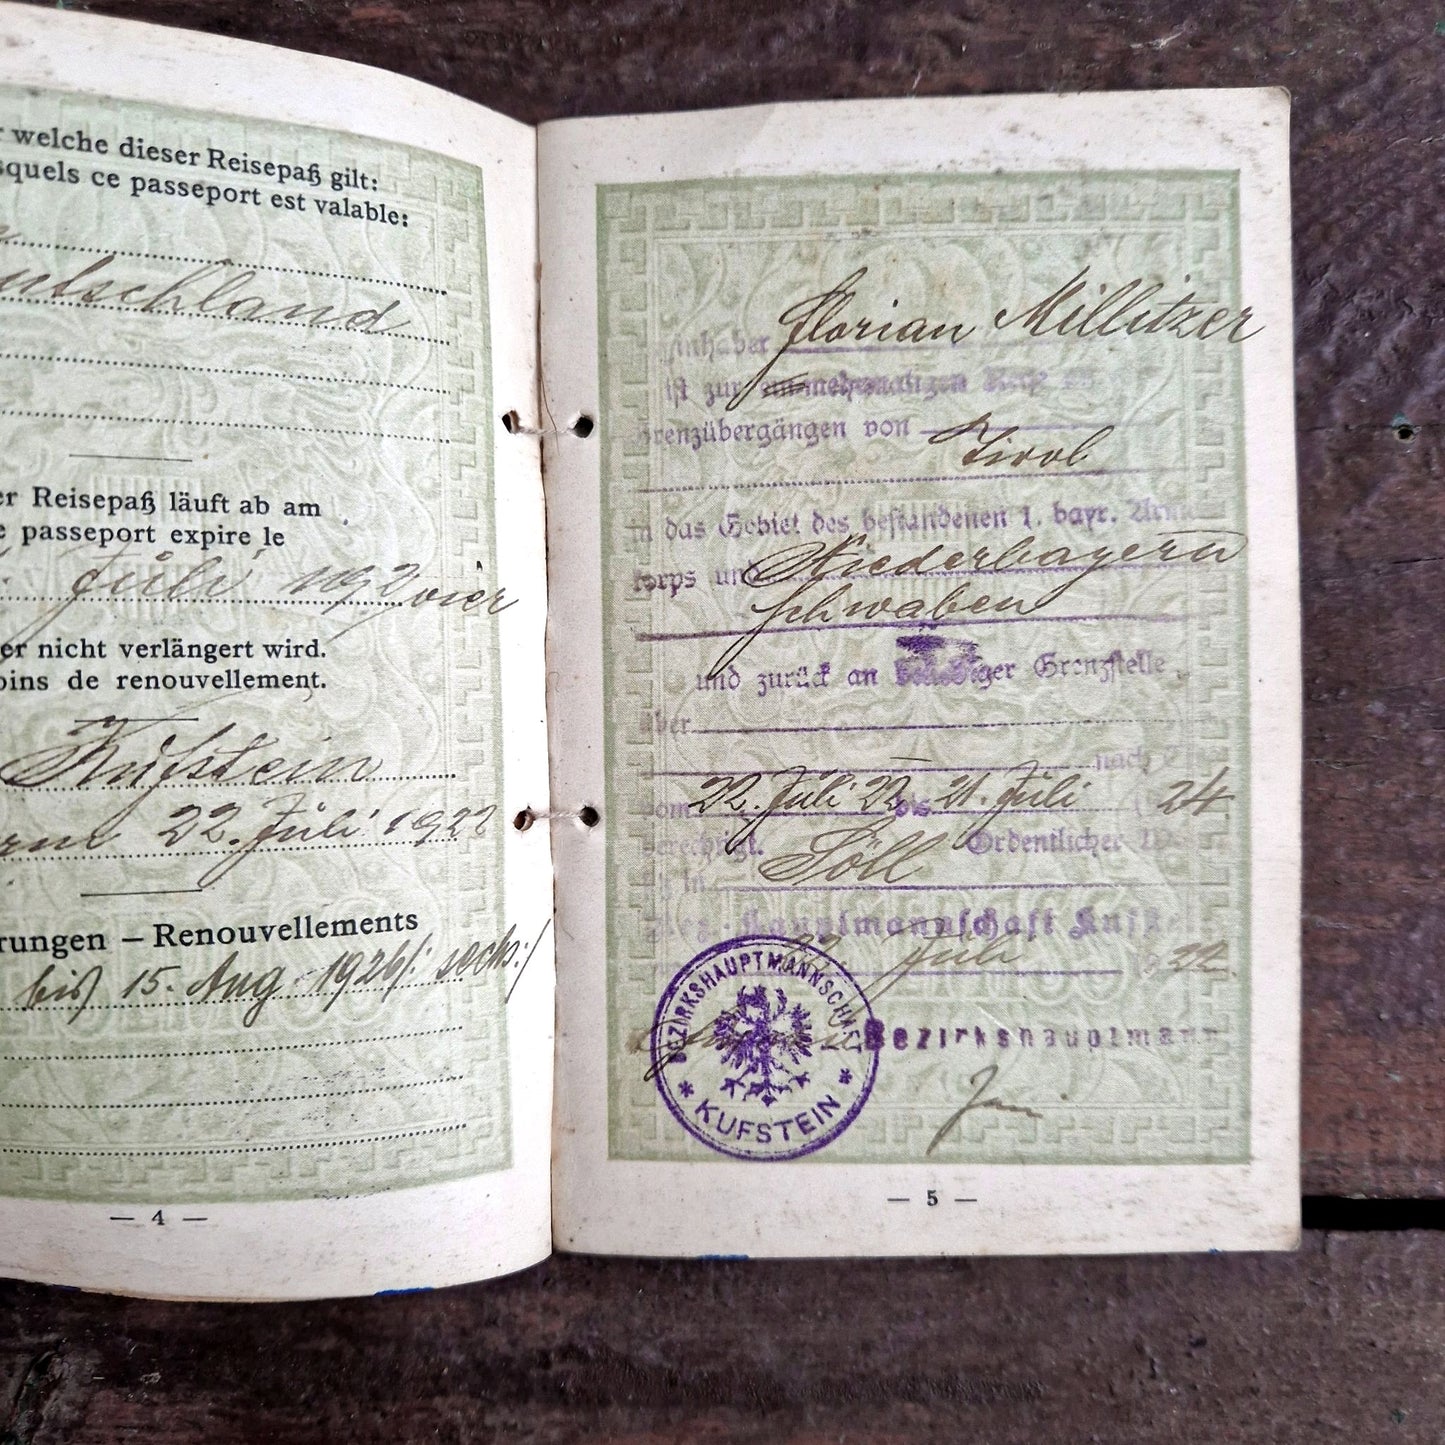 welche dieser Reisepaß gilt:
squels ce passeport est valable:
utschland
er Reisepaß läuft ab am
e passeport expire le
Juli 192vier
er nicht verlängert wird.
oins de renouvellement.
Kufstein
22. Juli 1922
rungen — Renouvellements
bis 15. Aug. 1926/: sechs:/
— 4 —
Inhaber Florian Millitzer
ist zur
Grenzübergängen von
Tirol
in das Gebiet des bestandenen 1. bayr. Arme
korps und Niederbayern
Schwaben
und zurück an Grenzstelle
über
nach
vom 22. Juli 22 bis 21. Juli 24
berechtigt. Ordentlicher
in Söll
Bez.-Hauptmannschaft Kufst
22 Juli 1922
Bezirkshauptmann
BEZIRKSHAUPTMANNSCHAFT
* KUFSTEIN *
— 5 —